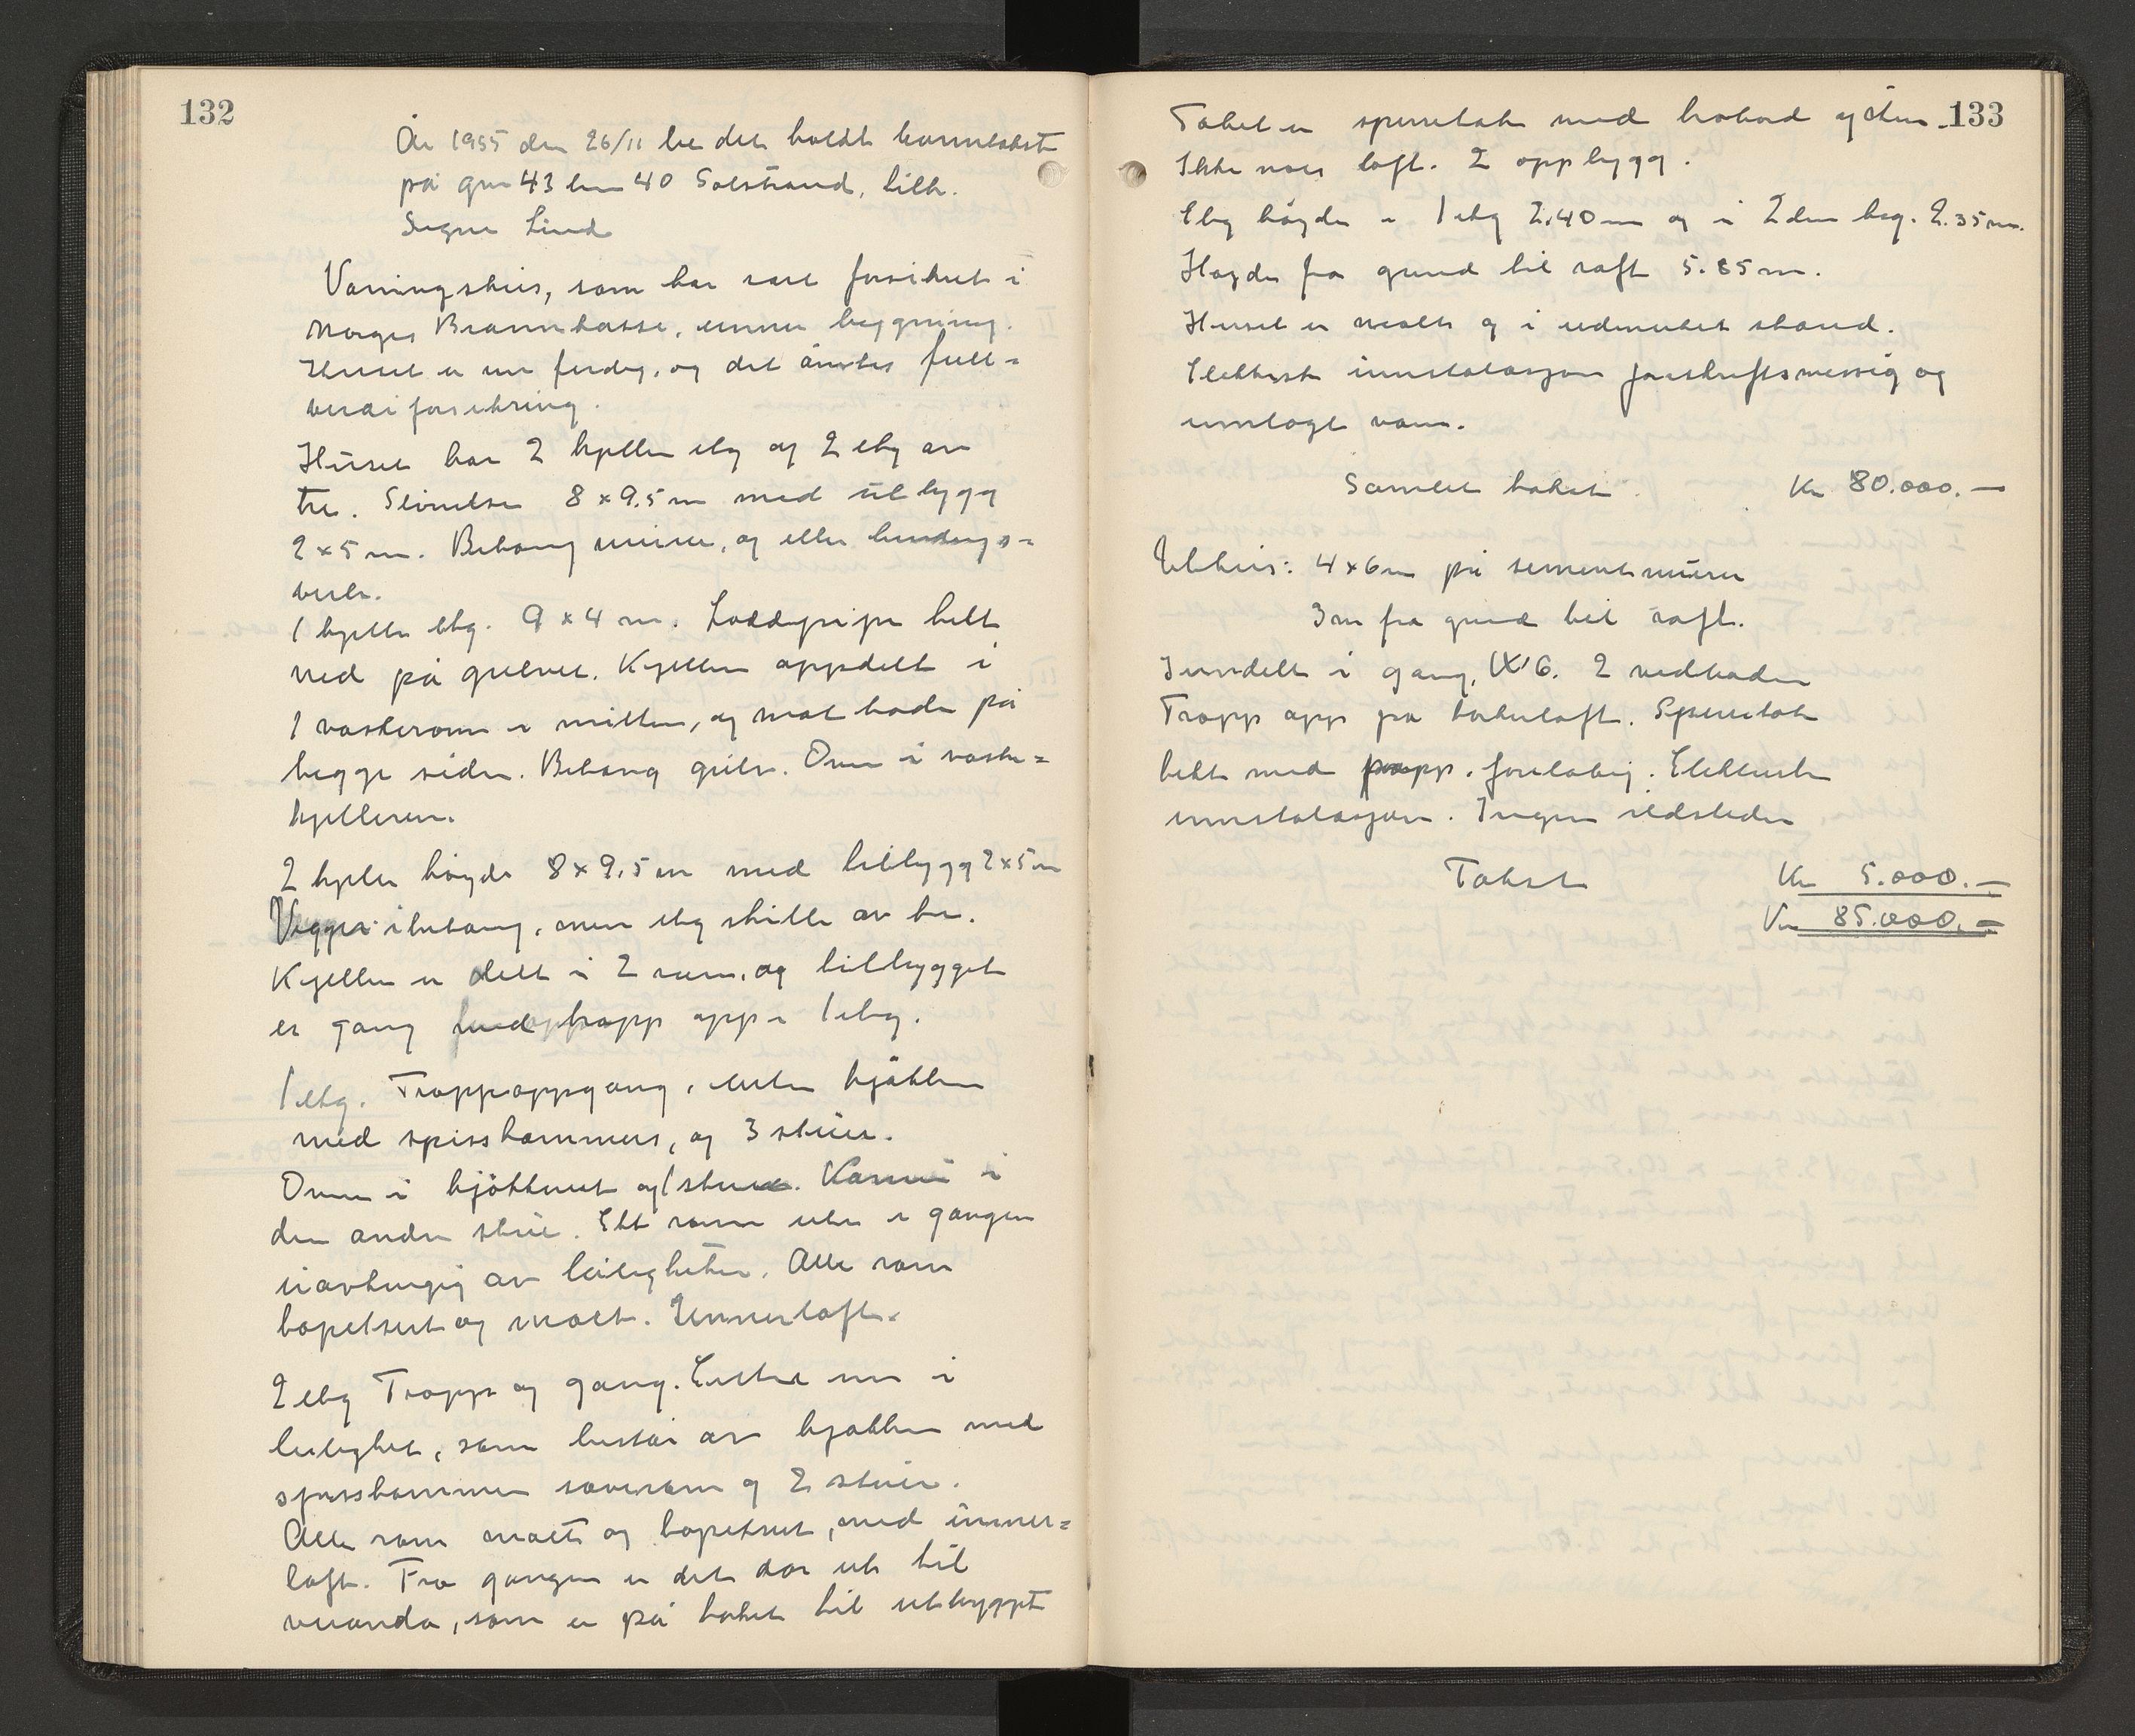 132
År 1955 den 26/11 ble det holdt branntakst
på gnr 43 bnr 40 Solstrand, tilh.
Signe Lind
Våningshus, som har vært forsikret i
Norges Brannkasse, unner bygning.
Huset er nu ferdig, og det ønskes full-
verdi forsikring.
Huset har 2 kjeller etg og 2 etg av
tre. Størrelse 8 x 9.5 m med tilbygg
2 x 5 m. Betong murer, og eller bindings-
verk.
1 kjeller etg. 9 x 4 m. Loddpipe helt
ned på gulvet. Kjelleren oppdelt i
1 vaskerom i mitten, og mat boder på
begge sider. Betong gulv. Ovn i vaske-
kjelleren.
2 kjeller høyde 8 x 9.5 m med tilbygg 2 x 5 m
Vegger i betong, men etg skille av tre.
Kjelleren er delt i 2 rum, og tilbygget
er gang med trapp opp i 1 etg.
1 etg. Trappoppgang, entre kjøkken
med spisskammers, og 3 stuer.
Ovn i kjøkkenet og 1 stue. Kamin i
den andre stue. Ett rom ute i gangen
uavhengig av leiligheten. Alle rom
tapetsert og malt. Unnerloft.
2 etg Trapp og gang. Entre inn i
leilighet, som består av kjøkken med
spisskammer soverom og 2 stuer.
Alle rom malt og tapetsert, med unner-
loft. Fra gangen er det dør ut til
veranda, som er på taket til utbygget
133
Taket er sperretak med trobord og
Ikke noe loft. 2 oppbygg.
Etg høyde i 1 etg 2.40 m og i 2den etg. 2.35 m.
Høyde fra grund til raft 5.85 m.
Huset er malt og i utmerket stand.
Elektrisk innstalasjon forskriftsmessig og
innlagt vann.
Samlet takst Kr 80.000.—
Uthus: 4 x 6 m på sementmurer
3 m fra grund til raft.
Inndelt i gang, W.C. 2 vedboder
Trapp opp på tørkeloft. Sperretak
tekt med papp, foreløbig. Elektrisk
innstalasjon. Ingen ildsteder
Takst Kr 5.000.—
Kr 85.000.—